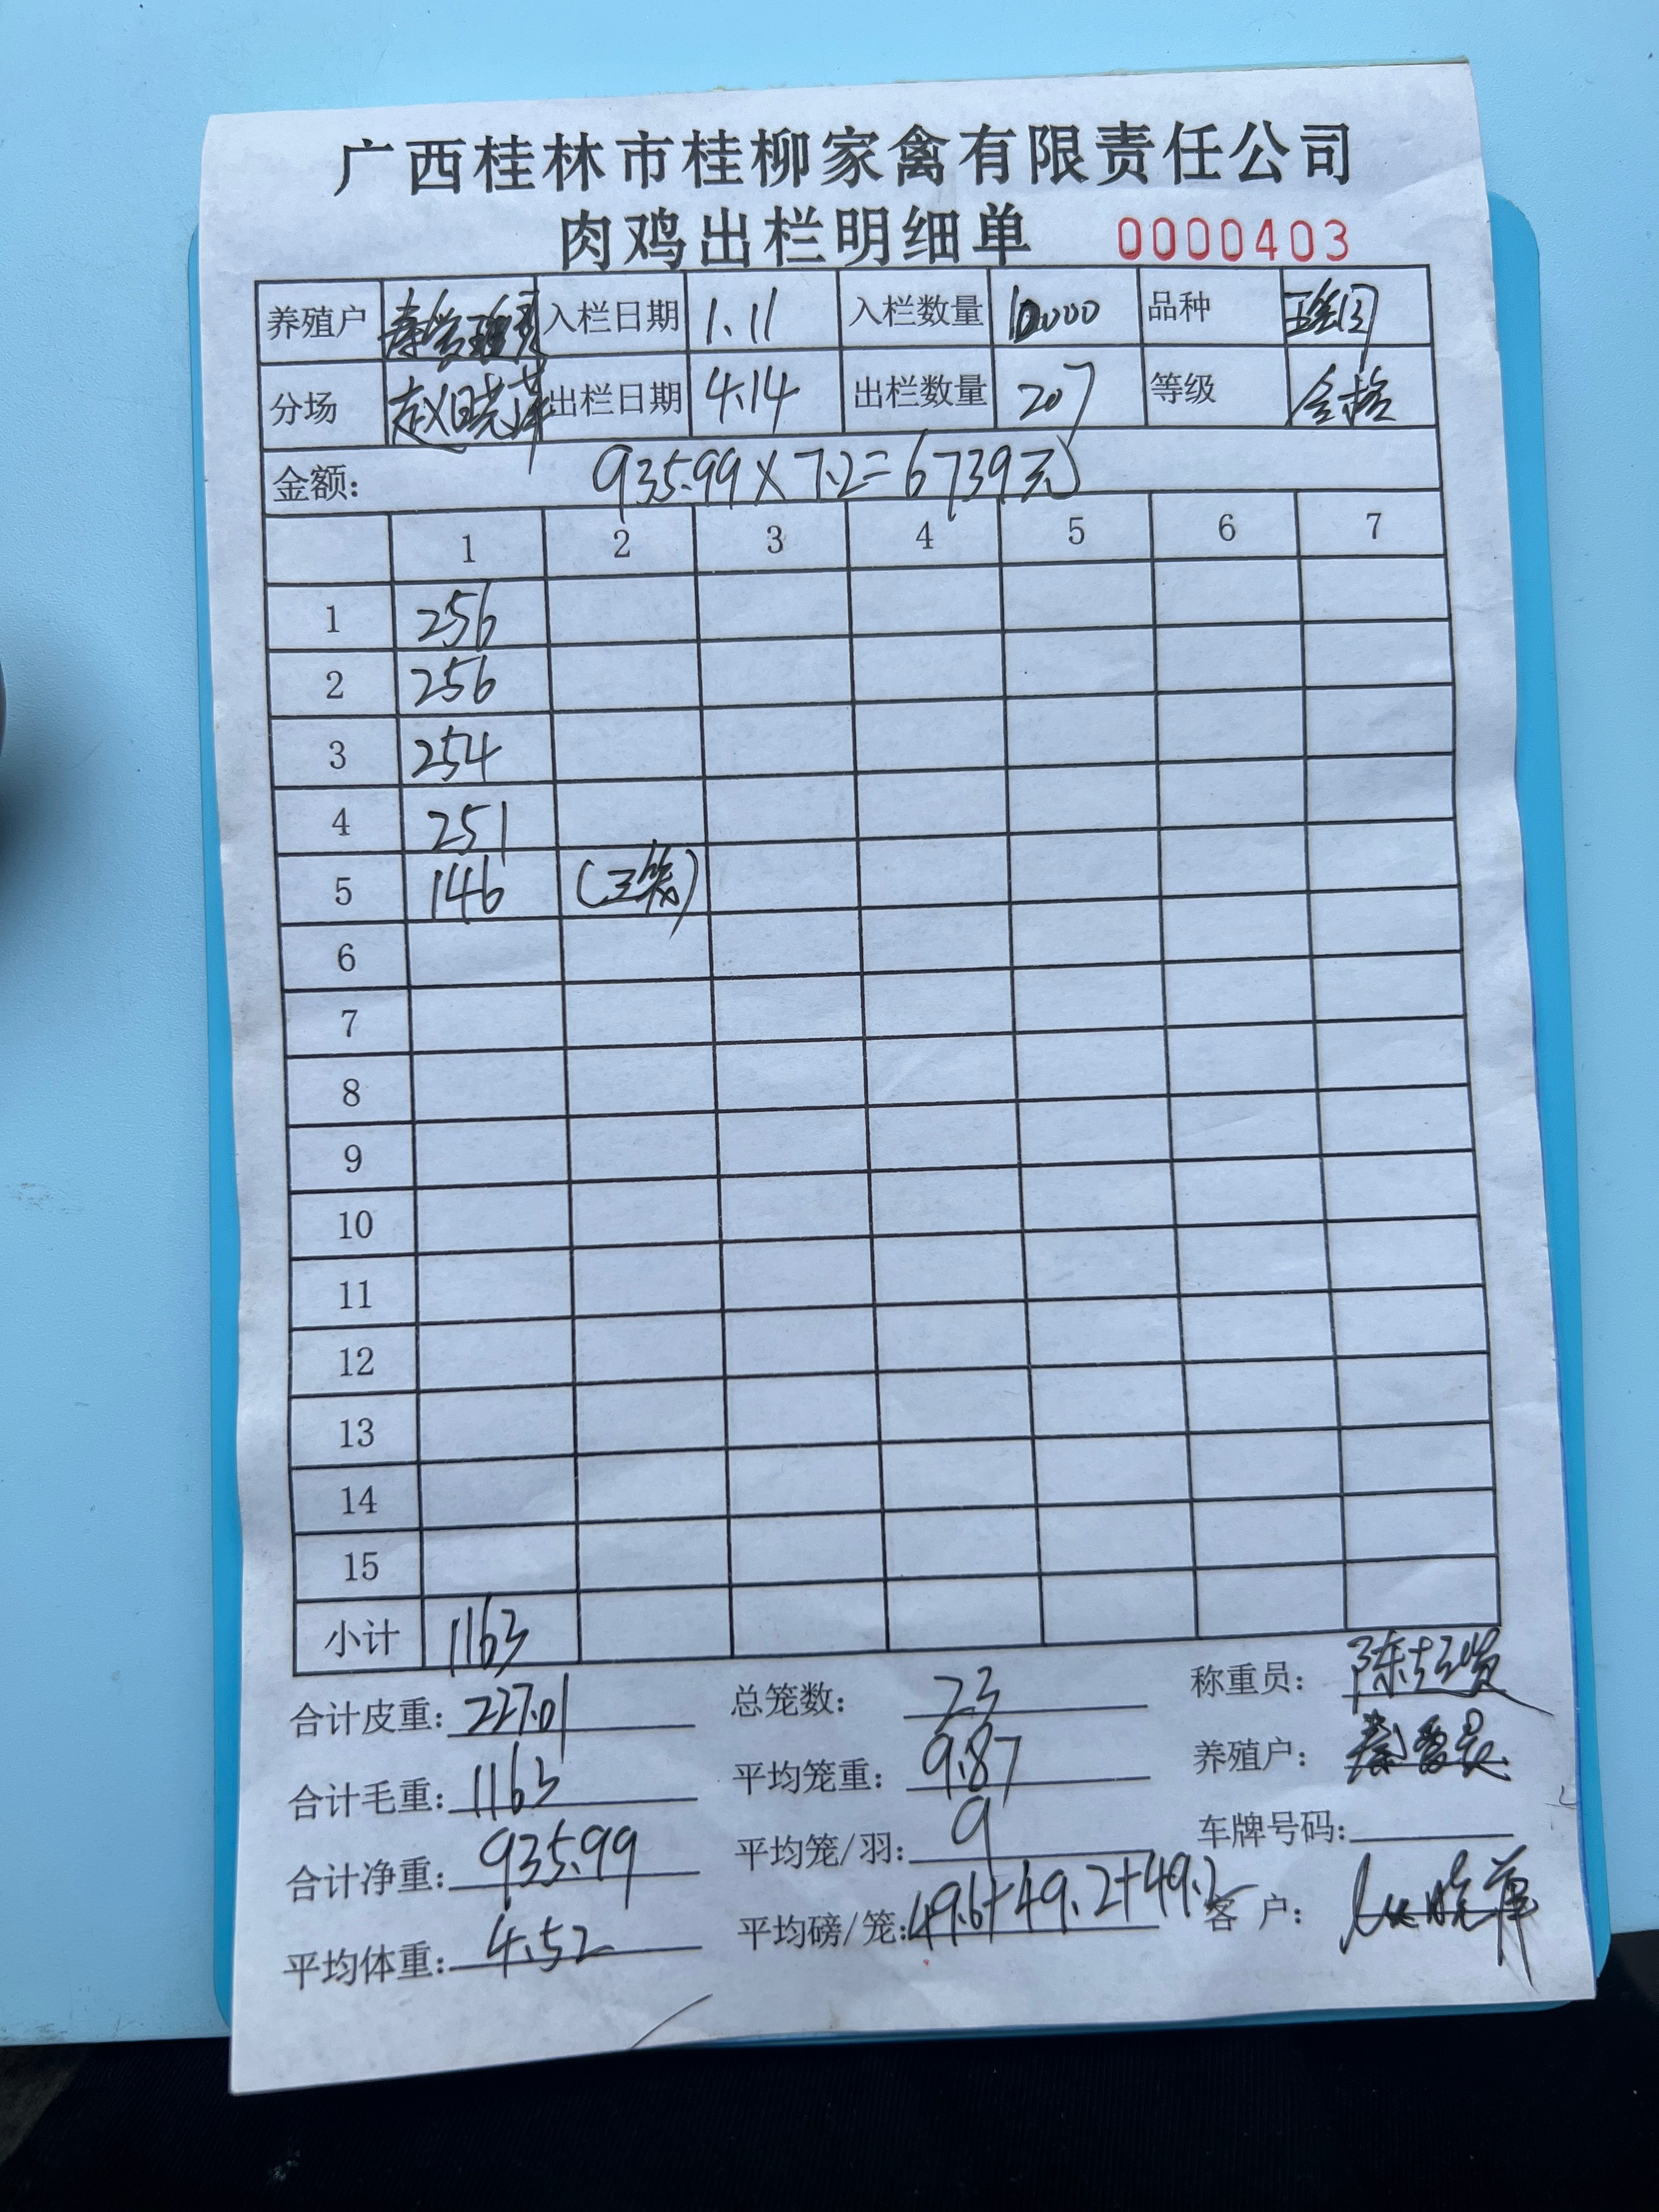 广西桂林市桂柳家禽有限责任公司
肉鸡出栏明细单 0000403
养殖户 入栏日期 1.11 入栏数量 10000 品种
分场 赵晓萍 出栏日期 4.14 出栏数量 207 等级 合格
金额: 935.99×7.2=6739元
1 2 3 4 5 6 7
1 256
2 256
3 254
4 251
5 146 (三笼)
6
7
8
9
10
11
12
13
14
15
小计 1163
合计皮重: 227.01 总笼数: 23 称重员:
合计毛重: 1163 平均笼重: 9.87 养殖户:
合计净重: 935.99 平均笼/羽: 9 车牌号码:
平均体重: 4.52 平均磅/笼: 49.6+49.2+49.2 客户: